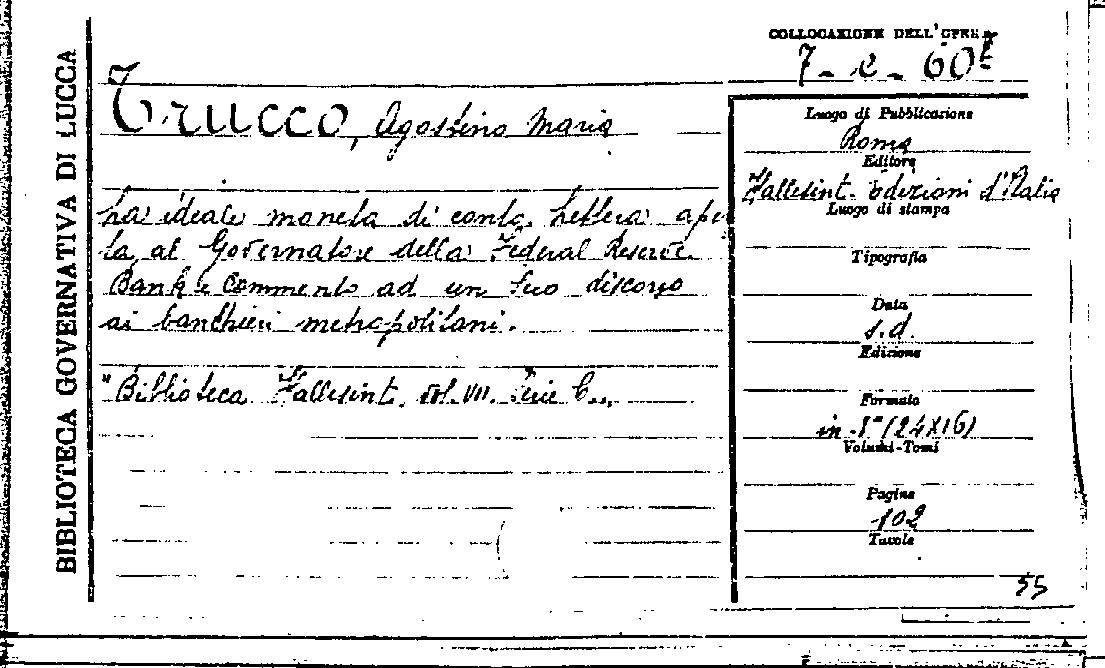 BIBLIOTECA GOVERNATIVA DI LUCCA
COLLOCAZIONE DELL'OPERA
7-e-60
TRUCCO, Agostino Maria
La ideale moneta di conto. Lettera aper
ta al Governatore della Federal Reserve
Bank e commento ad un suo discorso
ai banchieri metropolitani.
"Biblioteca Fallesint. vol. VII. Serie C..
Luogo di Pubblicazione
Roma
Editore
Fallesint. Edizioni d'Italia
Luogo di stampa
Tipografia
Data
s.d.
Edizione
Formato
in-8° (24X16)
Volumi-Tomi
Pagine
102
Tavole
55